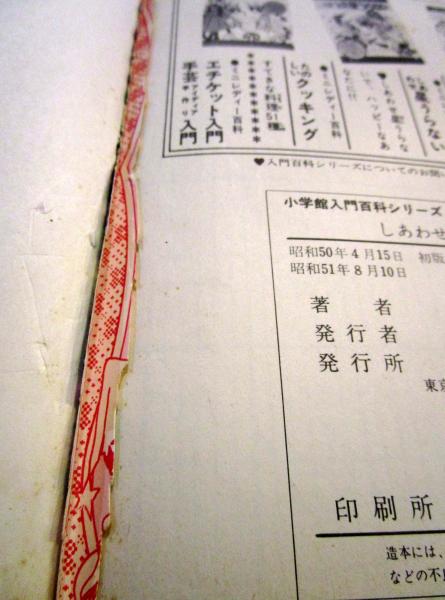 星うらない
●しあわせ星うらな
いで、ハッピーなあ
なたに!!
●ミニレディー百科
たのしいクッキング
すてきな料理51種
●ミニレディー百科
エチケット入門
手芸アイディア手作り入門
♥入門百科シリーズについてのお問い
小学館入門百科シリーズ
しあわせ
昭和50年4月15日 初版
昭和51年8月10日
著者
発行者
発行所
東京
印刷所
造本には、
などの不良